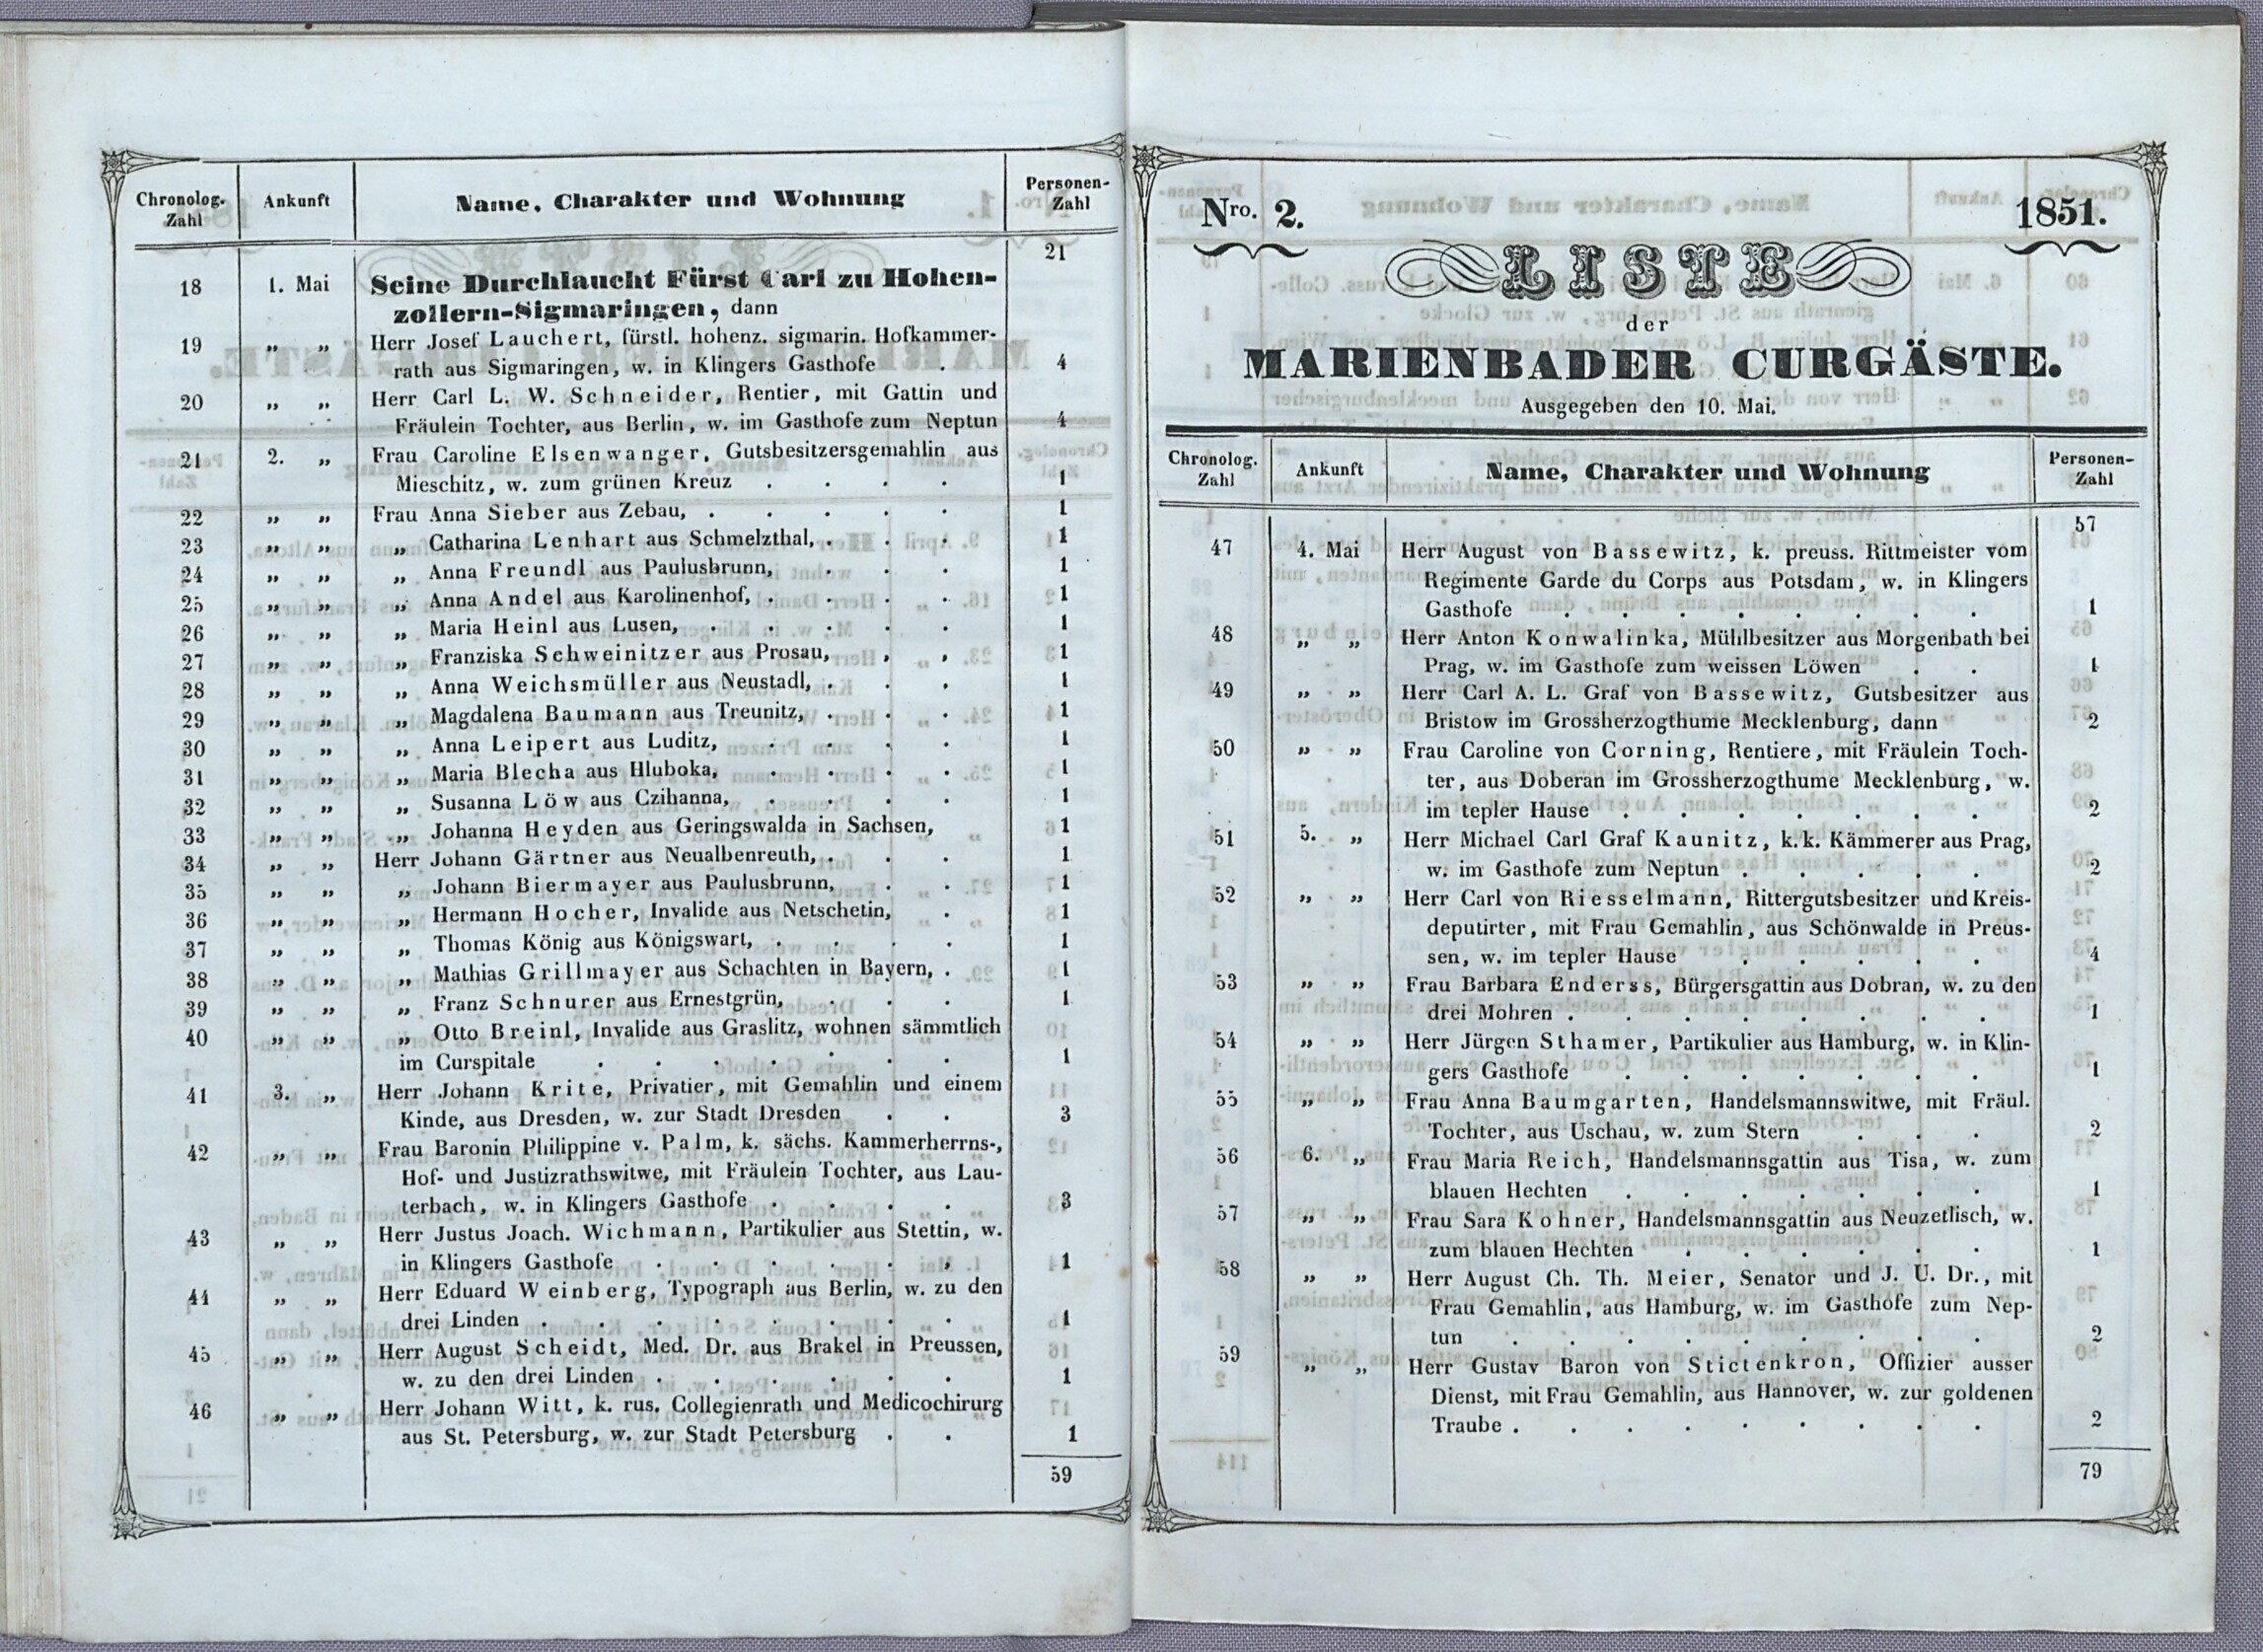 Chronolog. Zahl Ankunft Name, Charakter und Wohnung Personen-Zahl
21
18 1. Mai Seine Durchlaucht Fürst Carl zu Hohen-
zollern-Sigmaringen, dann
19 „ „ Herr Josef Lauchert, fürstl. hohenz. sigmarin. Hofkammer-
rath aus Sigmaringen, w. in Klingers Gasthofe . 4
20 „ „ Herr Carl L. W. Schneider, Rentier, mit Gattin und
Fräulein Tochter, aus Berlin, w. im Gasthofe zum Neptun 4
21 2. „ Frau Caroline Elsenwanger, Gutsbesitzersgemahlin aus
Mieschitz, w. zum grünen Kreuz . . . . 1
22 „ „ Frau Anna Sieber aus Zebau, . . . . . 1
23 „ „ „ Catharina Lenhart aus Schmelzthal, . . . 1
24 „ „ „ Anna Freundl aus Paulusbrunn, . . . 1
25 „ „ „ Anna Andel aus Karolinenhof, . . . . 1
26 „ „ „ Maria Heinl aus Lusen, . . . . . 1
27 „ „ „ Franziska Schweinitzer aus Prosau, . . 1
28 „ „ „ Anna Weichsmüller aus Neustadl, . . . 1
29 „ „ „ Magdalena Baumann aus Treunitz, . . . 1
30 „ „ „ Anna Leipert aus Luditz, . . . . 1
31 „ „ „ Maria Blecha aus Hluboka, . . . . 1
32 „ „ „ Susanna Löw aus Czihanna, . . . . 1
33 „ „ „ Johanna Heyden aus Geringswalda in Sachsen, 1
34 „ „ Herr Johann Gärtner aus Neualbenreuth, . . . 1
35 „ „ „ Johann Biermayer aus Paulusbrunn, . . 1
36 „ „ „ Hermann Hocher, Invalide aus Netschetin, . 1
37 „ „ „ Thomas König aus Königswart, . . . . 1
38 „ „ „ Mathias Grillmayer aus Schachten in Bayern, . 1
39 „ „ „ Franz Schnurer aus Ernestgrün, . . . 1
40 „ „ „ Otto Breinl, Invalide aus Graslitz, wohnen sämmtlich
im Curspitale . . . . . . . 1
41 3. „ Herr Johann Krite, Privatier, mit Gemahlin und einem
Kinde, aus Dresden, w. zur Stadt Dresden . . 3
42 „ „ Frau Baronin Philippine v. Palm, k. sächs. Kammerherrns-,
Hof- und Justizrathswitwe, mit Fräulein Tochter, aus Lau-
terbach, w. in Klingers Gasthofe . . . . 3
43 „ „ Herr Justus Joach. Wichmann, Partikulier aus Stettin, w.
in Klingers Gasthofe . . . . . . 1
44 „ „ Herr Eduard Weinberg, Typograph aus Berlin, w. zu den
drei Linden . . . . . . . . 1
45 „ „ Herr August Scheidt, Med. Dr. aus Brakel in Preussen,
w. zu den drei Linden . . . . . . 1
46 „ „ Herr Johann Witt, k. rus. Collegienrath und Medicochirurg
aus St. Petersburg, w. zur Stadt Petersburg . . 1
59
Nro. 2. 1851.
LISTE
der
MARIENBADER CURGÄSTE.
Ausgegeben den 10. Mai.
Chronolog. Zahl Ankunft Name, Charakter und Wohnung Personen-Zahl
57
47 4. Mai Herr August von Bassewitz, k. preuss. Rittmeister vom
Regimente Garde du Corps aus Potsdam, w. in Klingers
Gasthofe . . . . . . . . 1
48 „ „ Herr Anton Konwalinka, Mühlbesitzer aus Morgenbath bei
Prag, w. im Gasthofe zum weissen Löwen . . 1
49 „ „ Herr Carl A. L. Graf von Bassewitz, Gutsbesitzer aus
Bristow im Grossherzogthume Mecklenburg, dann 2
50 „ „ Frau Caroline von Corning, Rentiere, mit Fräulein Toch-
ter, aus Doberan im Grossherzogthume Mecklenburg, w.
im tepler Hause . . . . . . . 2
51 5. „ Herr Michael Carl Graf Kaunitz, k.k. Kämmerer aus Prag,
w. im Gasthofe zum Neptun . . . . . 2
52 „ „ Herr Carl von Riesselmann, Rittergutsbesitzer und Kreis-
deputirter, mit Frau Gemahlin, aus Schönwalde in Preus-
sen, w. im tepler Hause . . . . . 4
53 „ „ Frau Barbara Enderss, Bürgersgattin aus Dobran, w. zu den
drei Mohren . . . . . . . . 1
54 „ „ Herr Jürgen Sthamer, Partikulier aus Hamburg, w. in Klin-
gers Gasthofe . . . . . . . 1
55 „ „ Frau Anna Baumgarten, Handelsmannswitwe, mit Fräul.
Tochter, aus Uschau, w. zum Stern . . . 2
56 6. „ Frau Maria Reich, Handelsmannsgattin aus Tisa, w. zum
blauen Hechten . . . . . . . 1
57 „ „ Frau Sara Kohner, Handelsmannsgattin aus Neuzetlisch, w.
zum blauen Hechten . . . . . . 1
58 „ „ Herr August Ch. Th. Meier, Senator und J. U. Dr., mit
Frau Gemahlin, aus Hamburg, w. im Gasthofe zum Nep-
tun . . . . . . . . . 2
59 „ „ Herr Gustav Baron von Stictenkron, Offizier ausser
Dienst, mit Frau Gemahlin, aus Hannover, w. zur goldenen
Traube . . . . . . . . . 2
79